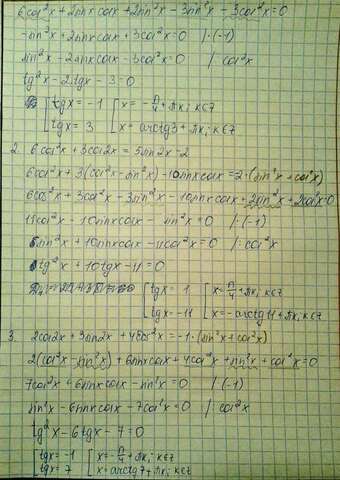 6cos²x + 2sinxcosx + 2sin²x - 3sin²x - 3cos²x = 0
-sin²x + 2sinxcosx + 3cos²x = 0 /·(-1)
sin²x - 2sinxcosx - 3cos²x = 0 /: cos²x
tg²x - 2tgx - 3 = 0
[tgx = -1 [x = -π/4 + πk; k∈Z
[tgx = 3 [x = arctg3 + πk; k∈Z
2. 6cos²x + 3cos2x = 5sin2x - 2
6cos²x + 3(cos²x - sin²x) - 10sinxcosx = 2·(sin²x + cos²x)
6cos²x + 3cos²x - 3sin²x - 10sinxcosx + 2sin²x + 2cos²x = 0
11cos²x - 10sinxcosx - sin²x = 0 /·(-1)
sin²x + 10sinxcosx - 11cos²x = 0 /: cos²x
tg²x + 10tgx - 11 = 0
[tgx = 1 [x = π/4 + πk; k∈Z
[tgx = -11 [x = -arctg11 + πk; k∈Z
3. 2cos2x + 3sin2x + 4cos²x = -1·(sin²x + cos²x)
2(cos²x - sin²x) + 6sinxcosx + 4cos²x + sin²x + cos²x = 0
7cos²x + 6sinxcosx - sin²x = 0 /·(-1)
sin²x - 6sinxcosx - 7cos²x = 0 /: cos²x
tg²x - 6tgx - 7 = 0
[tgx = -1 [x = -π/4 + πk; k∈Z
[tgx = 7 [x = arctg7 + πk; k∈Z